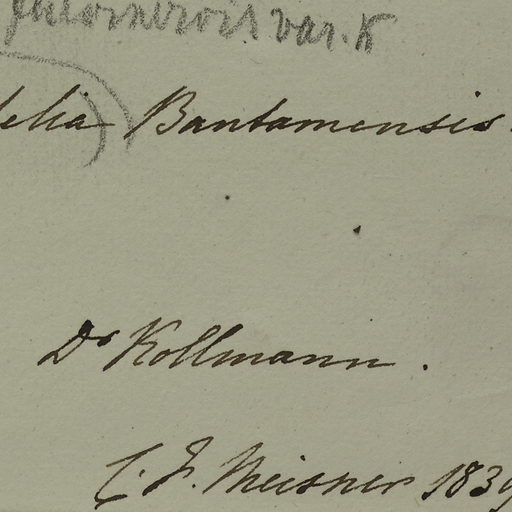 var. K
elia Bantamensis.
Dr Kollmann.
C. F. Meisner 1839